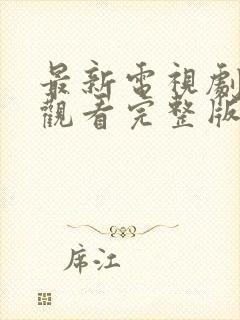 最新電視劇
觀看完整版
席江